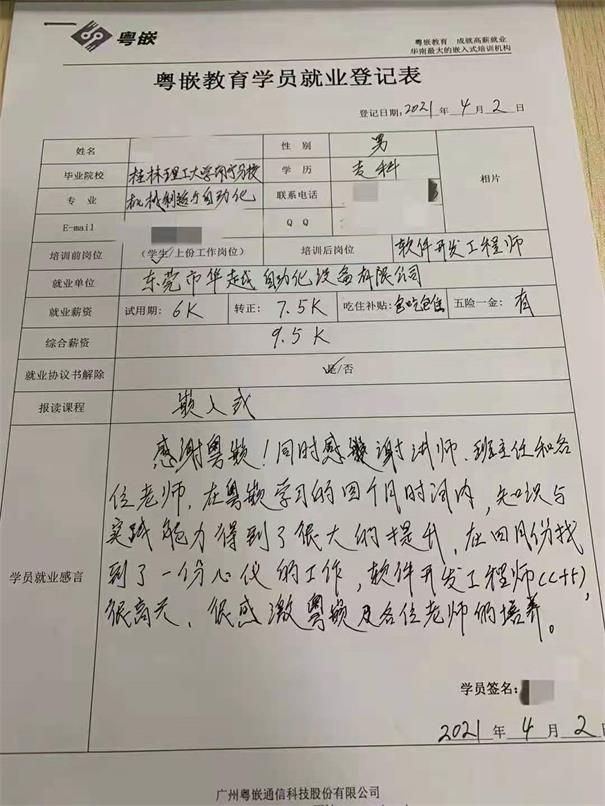 粤嵌
粤嵌教育 成就高薪就业
华南最大的嵌入式培训机构
粤嵌教育学员就业登记表
登记日期:2021年4月2日
姓名 性别 男
毕业院校 桂林理工大学南宁分校 学历 专科 相片
专业 机械制造与自动化 联系电话
E-mail Q Q
培训前岗位 (学生/上份工作岗位) 培训后岗位 软件开发工程师
就业单位 东莞市华越自动化设备有限公司
就业薪资 试用期: 6K 转正: 7.5K 吃住补贴:包吃包住 五险一金: 有
综合薪资 9.5K
就业协议书解除 是/否
报读课程 嵌入式
学员就业感言
感谢粤嵌!同时感谢讲师、班主任和各
位老师,在粤嵌学习的四个月时间内,知识与
实践能力得到了很大的提升,在四月份找
到了一份心仪的工作,软件开发工程师(C++),
很高兴、很感激粤嵌及各位老师们的培养。
学员签名:
2021年4月2日
广州粤嵌通信科技股份有限公司